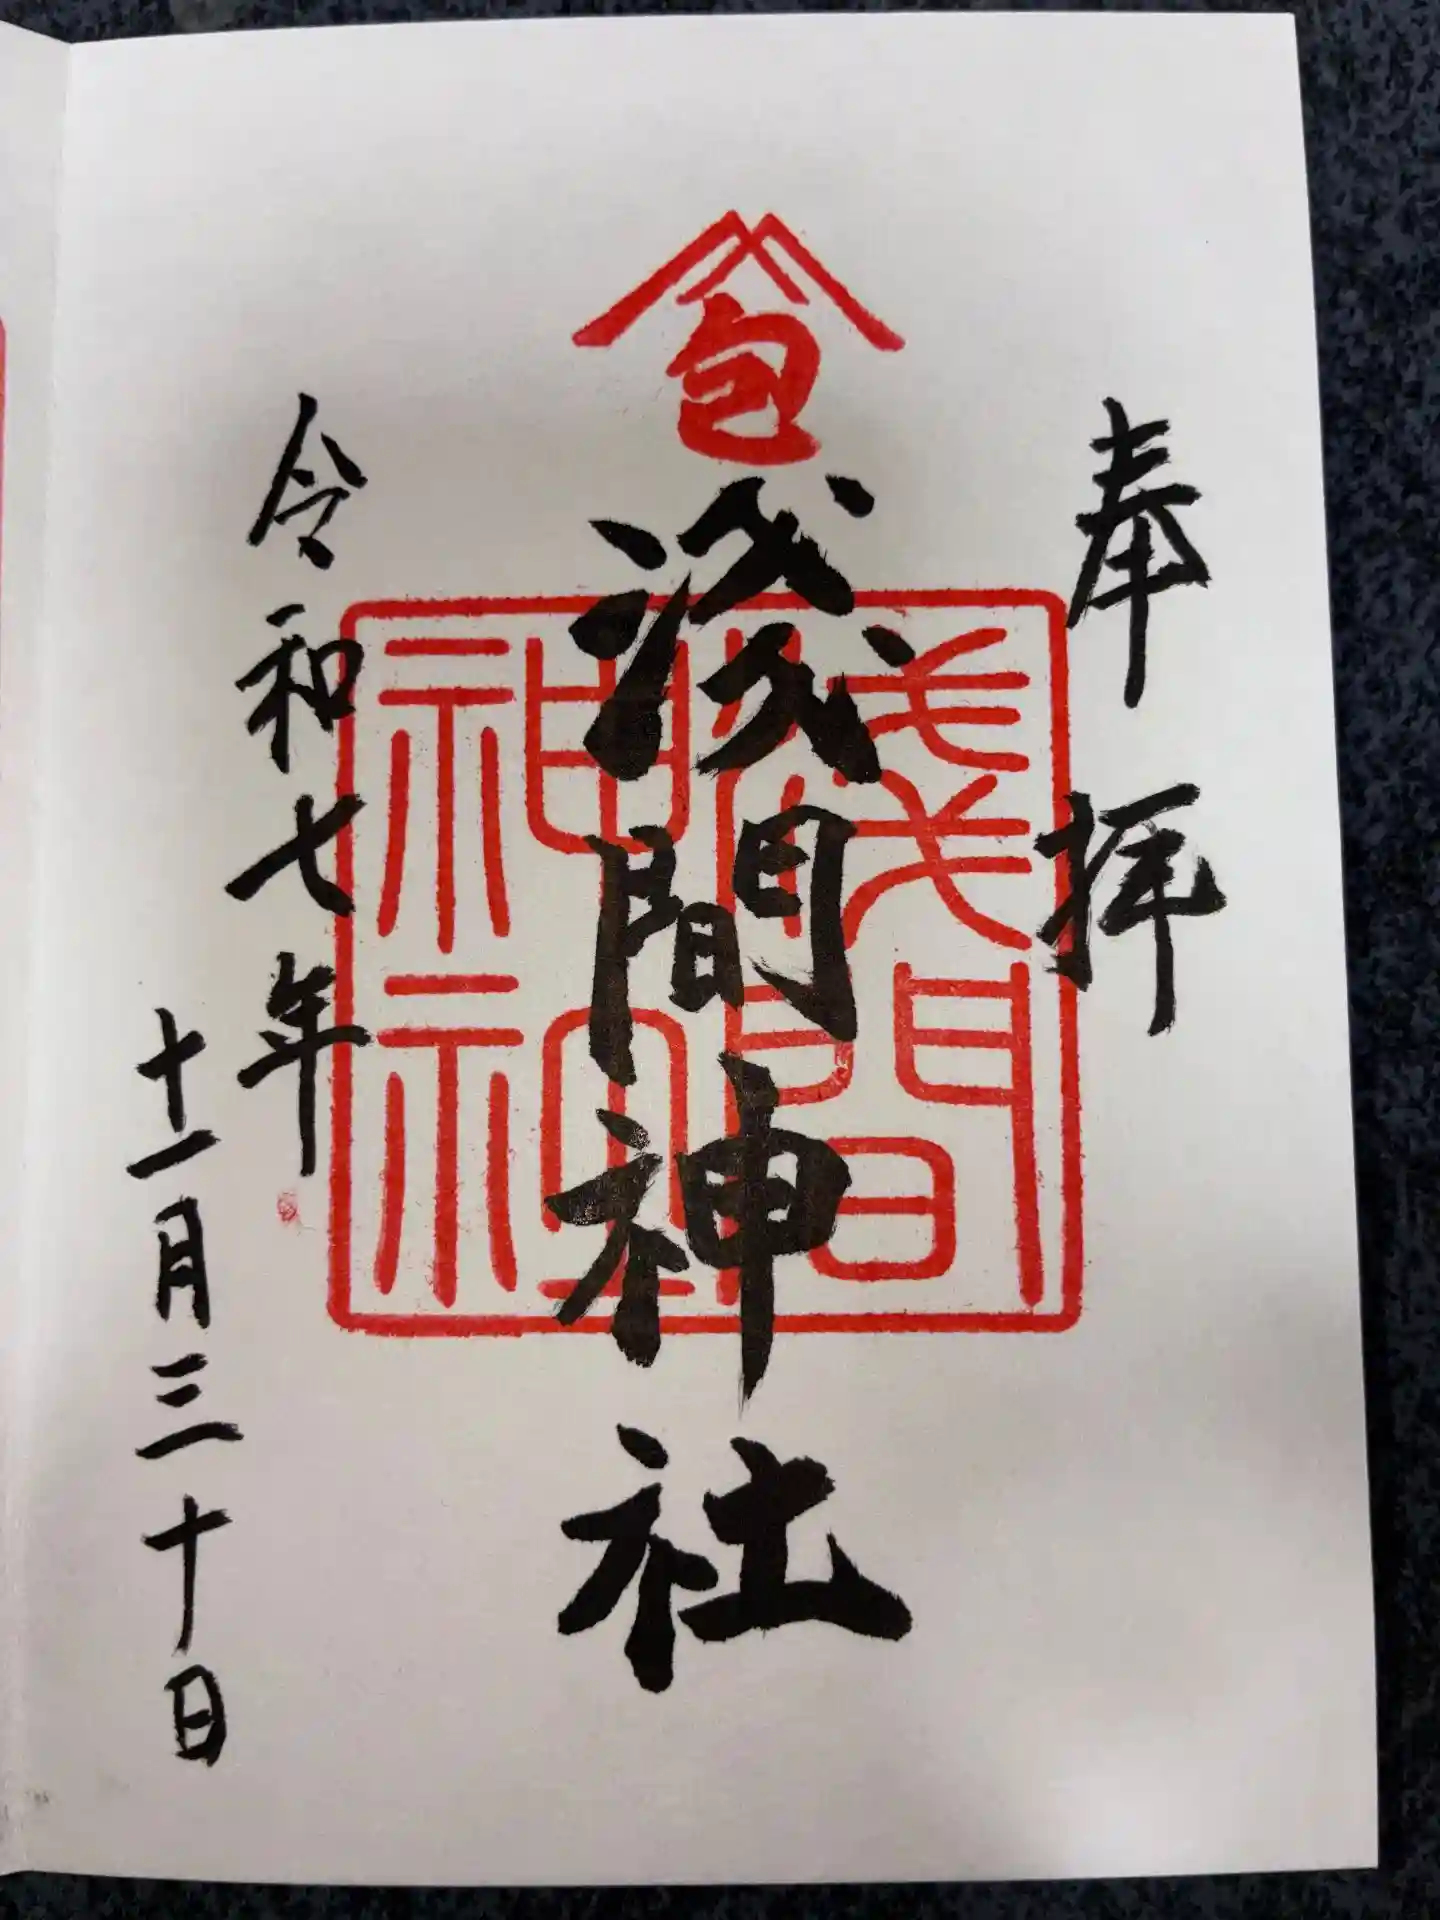 奉拝
包
浅間神社
淺間神社
令和七年
十一月三十日